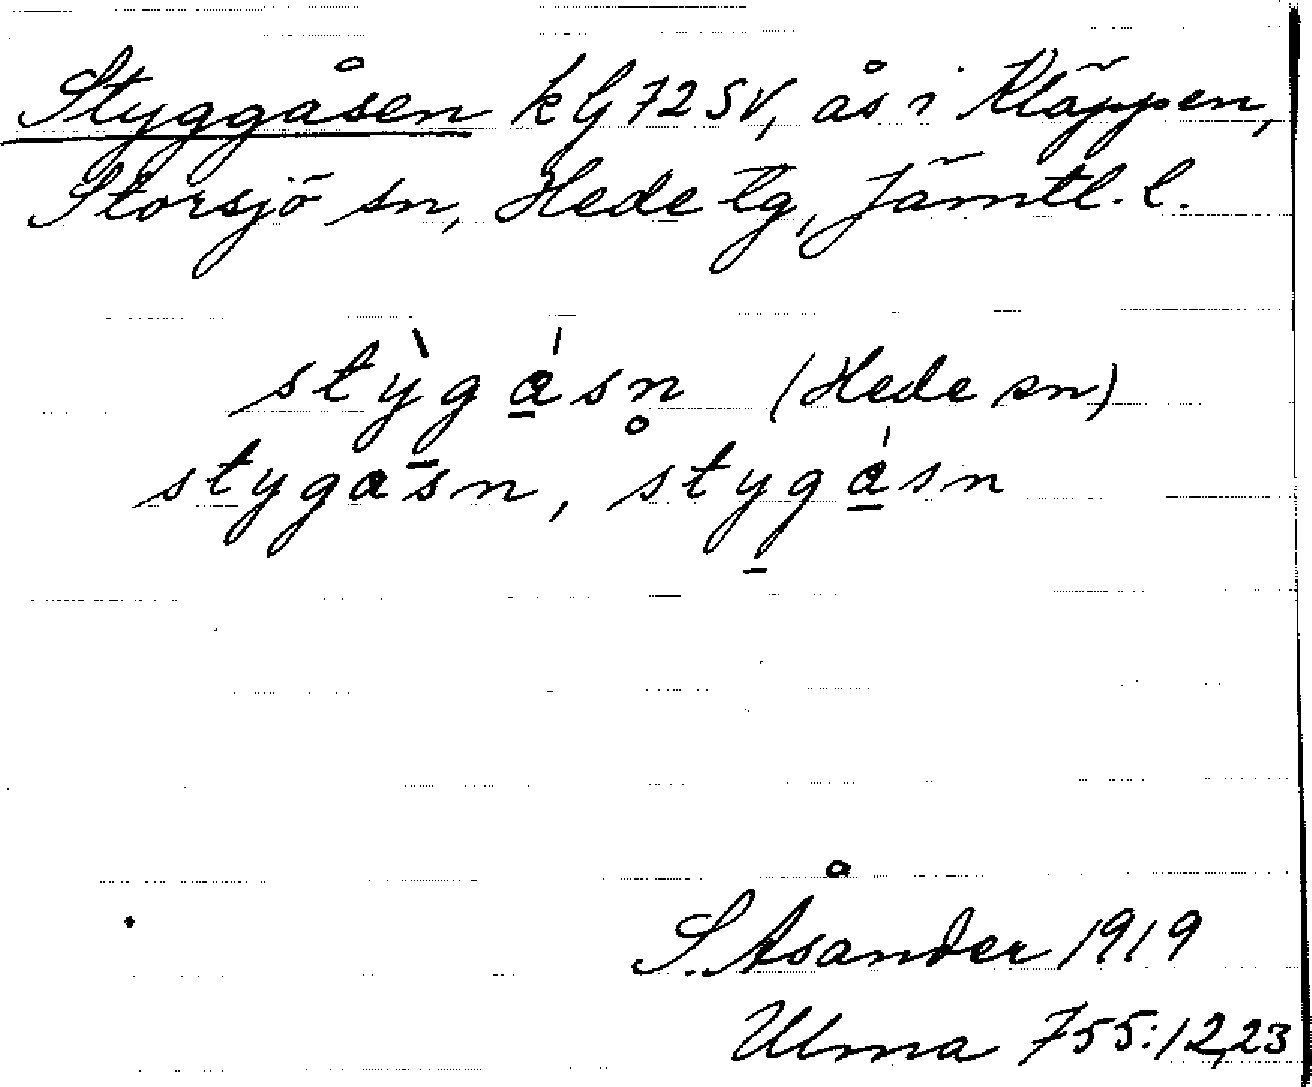 Styggåsen kG72SV, ås i Kläppen,
Storsjö sn, Hede tg, Jämtl. l.
stỳgásn̥ (Hede sn)
stygasn, stygásn
S. Åsander 1919
Ulma 755:12,23